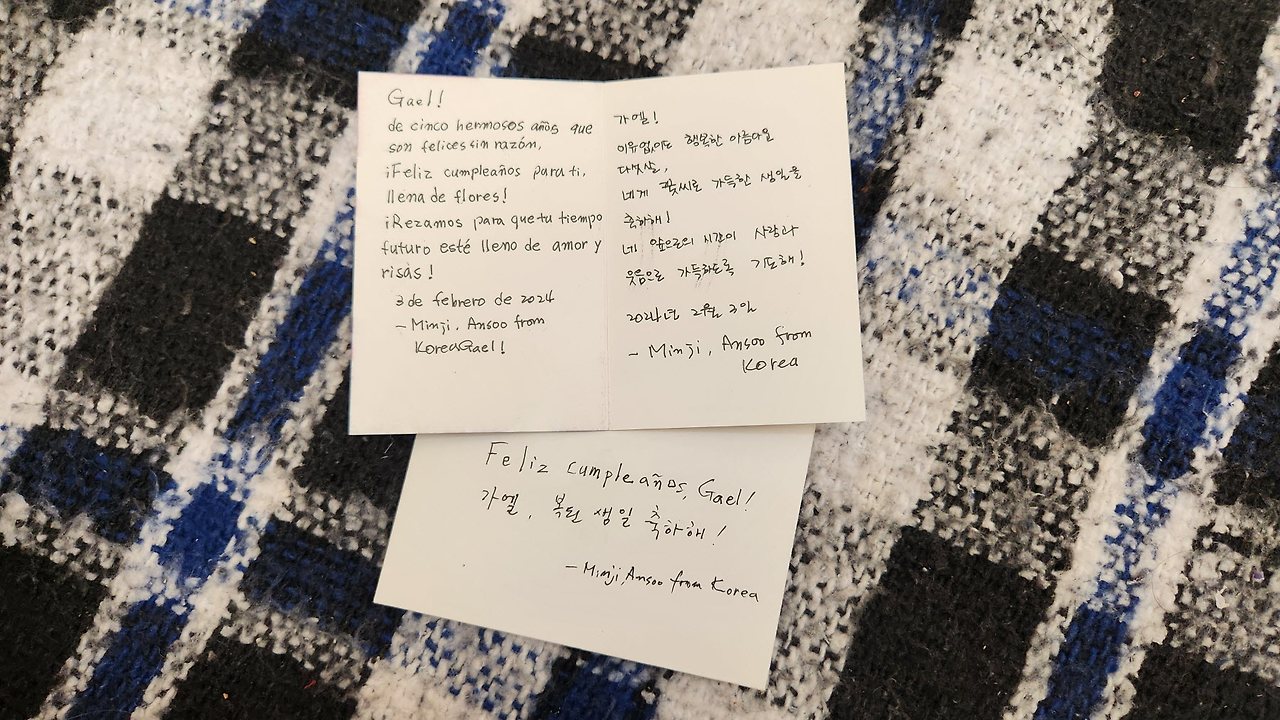 Gael!
de cinco hermosos años que
son felices sin razón,
¡Feliz cumpleaños para ti,
llena de flores!
¡Rezamos para que tu tiempo
futuro esté lleno de amor y
risas!
3 de febrero de 2024
- Minji, Ansoo from
KoreaGael!
가엘!
이유없이도 행복한 아름다운
다섯살,
네게 꽃씨로 가득한 생일을
축하해!
네 앞으로의 시간이 사랑과
웃음으로 가득하도록 기도해!
2024년 2월 3일
- Minji, Ansoo from
Korea
Feliz cumpleaños, Gael!
가엘, 복된 생일 축하해!
- Minji, Ansoo from Korea